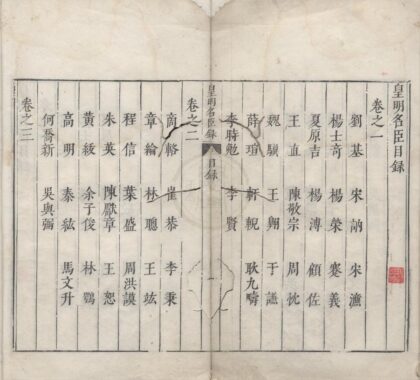 皇明名臣目録
卷之一
劉基 宋訥 宋濂
楊士奇 楊榮 蹇義
夏原吉 楊溥 顧佐
王直 陳敬宗 周忱
魏驥 王翱 于謙
薛瑄 軒輗 耿九疇
李時勉 李賢
皇明名臣録 目録
卷之二
商輅 崔恭 李秉
章綸 林聰 王竑
程信 葉盛 周洪謨
朱英 陳獻章 王恕
黃紱 余子俊 林鶚
高明 秦紘 馬文升
何喬新 吳與弼
卷之三